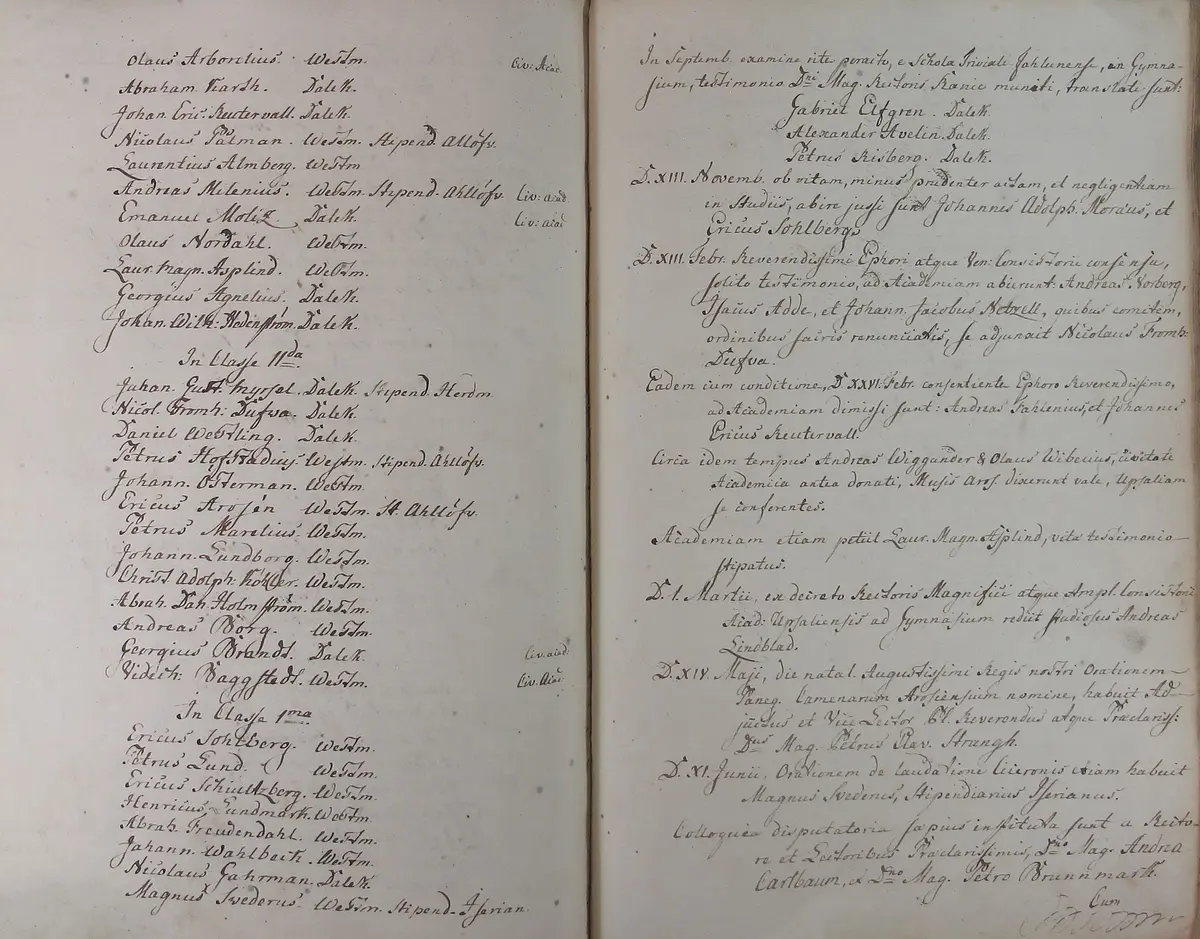 Olaus Arborelius. Westm. Civ: Acad.
Abraham Karth. Dalek.
Johan Eric: Reutervall. Dalek.
Nicolaus Palman. Westm. Stipend. Ahllöfv.
Laurentius Almberg. Westm
Andreas Milenius. Westm Stipend. Ahllöfv. Civ: acad
Emanuel Dalek. Civ: acad
Olaus Nordahl. Westm.
Laur. Magn. Asplind. Westm.
Georgius Agnelius. Dalek.
Johan. Wilh: Hedenström. Dalek.
In Classe IIda
Johan. Gust. Dalek. Stipend Herdm.
Nicol. Fromh: Dufva. Dalek
Daniel Westling. Dalek.
Petrus Hofstadius Westm. Stipend. Ahllöfv.
Johann. Osterman. Westm.
Ericus Arosén Westm. St. Ahllöfv.
Petrus Marelius. Westm.
Johann. Lundborg. Westm.
Christ. Adolph. Köhler. Westm.
Abrah. Dan. Holmström. Westm.
Andreas Borg. Westm.
Georgius Brandt. Dalek. Civ. acad
Didrich: Baggstedt. Westm. Civ. Acad
In Classe 1ma
Ericus Sohlberg. Westm.
Petrus Lund. Westm.
Ericus Schultzberg. Westm.
Henricus Lundmark. Westm.
Abrah. Freudendahl. Westm.
Johann. Wahlbeck. Westm.
Nicolaus Gahrman. Dalek.
Magnus Swederus. Westm. Stipend. Iserian.
In Septemb. examine rite peracto, e Schola Triviali Fahlunense, in Gymna-
sium, testimonio Dni Mag. Rectoris muniti, translati sunt:
Gabriel Elfgren. Dalek
Alexander Avelin. Dalek
Petrus Risberg. Dalek.
D. XIII. Novemb. ob vitam, minus prudenter actam, et negligentiam
in Studiis, abire jussi sunt Johannes Adolph. Moræus, et
Ericus Sohlberg.
D. XIII. Febr. Reverendissimi Ephori atque Ven: Consistorii consensu,
solito testimonio, ad Academiam abierunt: Andreas Norberg,
Isacus Adde, et Johann. Jacobus Netrell, quibus comitem,
ordinibus sacris renunciatis, se adjunxit Nicolaus Fromh:
Dufva.
Eadem cum conditione, D XXVI. Febr. consentiente Ephoro Reverendissimo,
ad Academiam dimissi sunt: Andreas Fahlenius, et Johannes
Ericus Reutervall.
Circa idem tempus Andreas Wiggander & Olaus Wibelius, civitate
Academica antea donati, Musis Aros. dixerunt vale, Upsaliam
se conferentes.
Academiam etiam petiit Laur. Magn. Asplind, vitæ testimonio
stipatus.
D. 1. Martii, ex decreto Rectoris Magnifici atque Ampl. Consistorii
Acad: Upsaliensis ad Gymnasium rediit studiosus Andreas
Lindblad.
D. XIV. Maji, die natal. Augustissimi Regis nostri Orationem
Paneg. Camenarum Arosiensium nomine, habuit Ad-
junctus et Vice Lector Pl. Reverendus atque Præclariss:
Dnus Mag. Petrus Strangh.
D. XI. Junii, Orationem de laudatione Ciceronis etiam habuit
Magnus Swederus, Stipendiarius Iserianus.
Colloquia disputatoria sæpius instituta sunt a Recto-
re et Lectoribus Præclarissimis, Dno Mag. Andrea
Carlbaum, et Dno Mag. Petro Brunnmark.
Cum